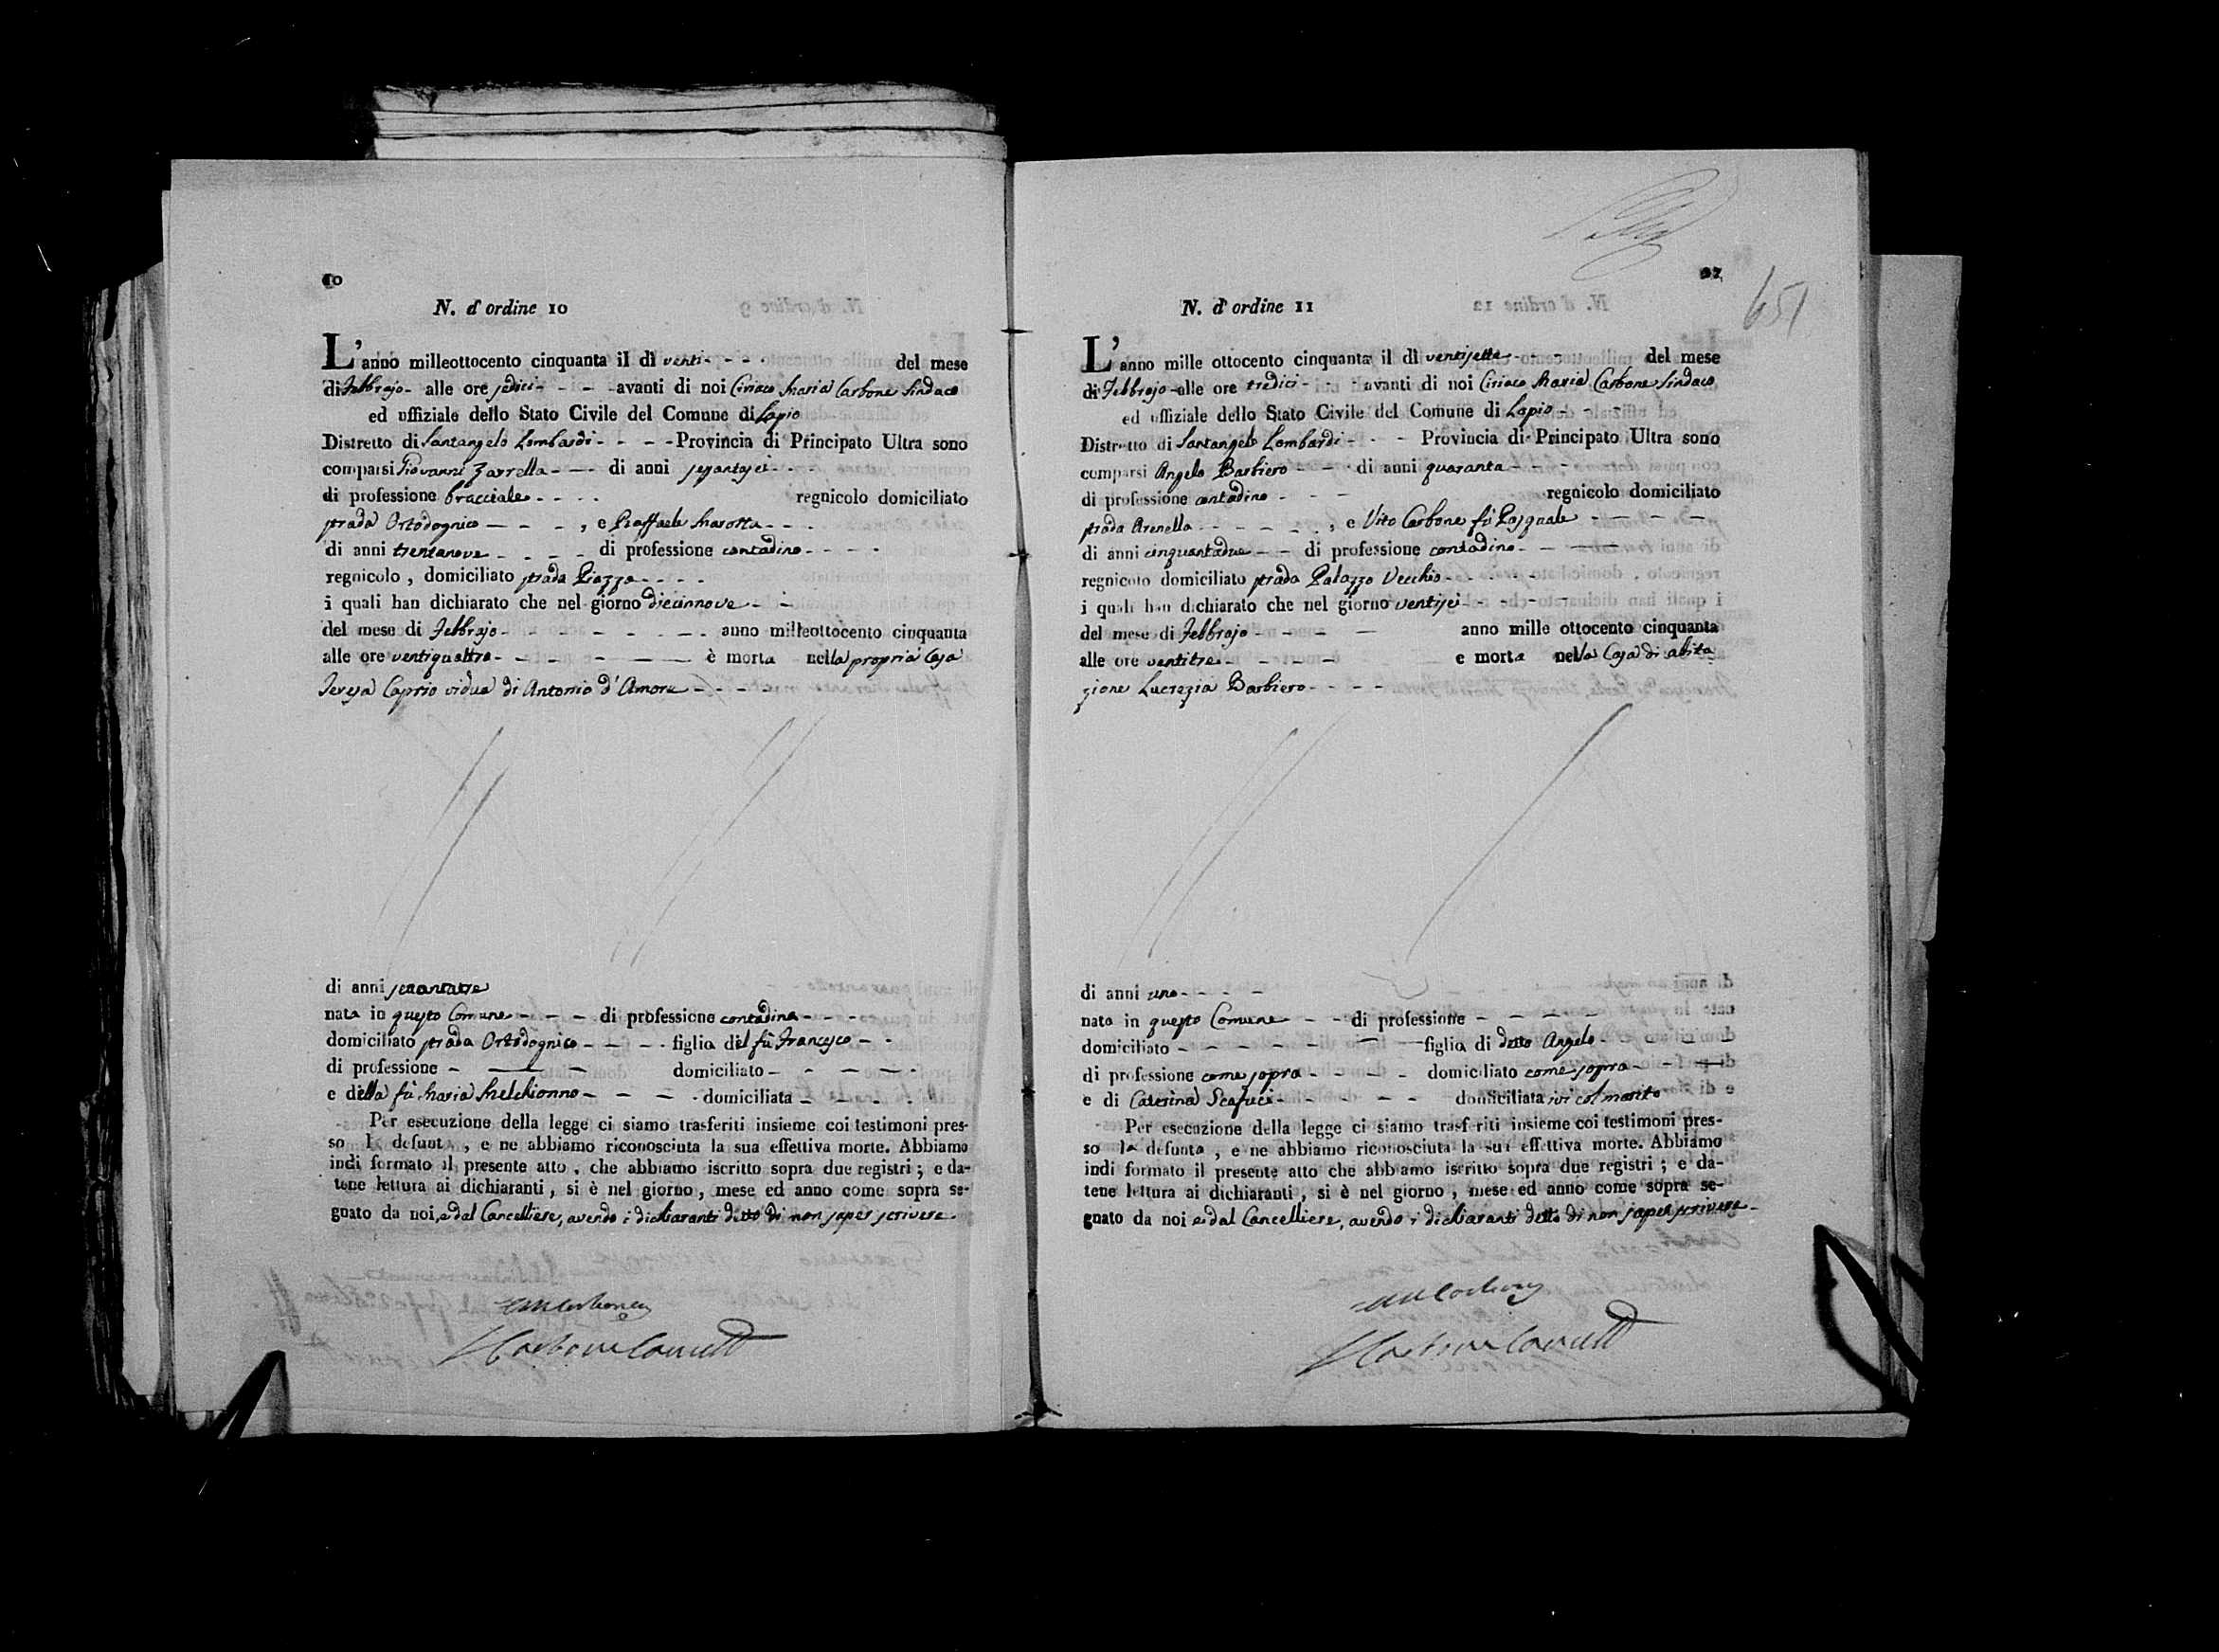 10
N. d'ordine 10
L'anno milleottocento cinquanta il dì venti - - - del mese
di Febbrajo - alle ore sedici - - - avanti di noi Ciriaco Maria Carbone Sindaco
ed uffiziale dello Stato Civile del Comune di Lapio
Distretto di Santangelo Lombardi - - - - Provincia di Principato Ultra sono
comparsi Giovanni Zarrella - - - di anni sessantasei - - -
di professione bracciale - - - - regnicolo domiciliato
strada Ortodognico - - - , e Raffaele Marotta - - -
di anni trentanove - - - - di professione contadino - - - -
regnicolo , domiciliato strada Piazza - - - -
i quali han dichiarato che nel giorno diecinnove - -
del mese di Febbrajo - - - - - - - anno milleottocento cinquanta
alle ore ventiquattro - - - - - - è morta nella propria Casa
Teresa Caprio vidua di Antonio d'Amore - - - -
di anni settantatre
nata in questo Comune - - - di professione contadina - - -
domiciliato strada Ortodognico - - - - figlia del fù Francesco - -
di professione - - - domiciliato - - - - -
e della fù Maria Melchionno - - - - domiciliata - - - - -
Per esecuzione della legge ci siamo trasferiti insieme coi testimoni pres-
so la defunta , e ne abbiamo riconosciuta la sua effettiva morte. Abbiamo
indi formato il presente atto , che abbiamo iscritto sopra due registri ; e da-
tene lettura ai dichiaranti , si è nel giorno , mese ed anno come sopra se-
gnato da noi, e dal Cancelliere, avendo i dichiaranti detto di non saper scrivere -
CMCarbone
Carbone Cancell
651
N. d'ordine 11
L'anno mille ottocento cinquanta il dì ventisette - - - del mese
di Febbrajo - alle ore tredici - - - avanti di noi Ciriaco Maria Carbone Sindaco
ed uffiziale dello Stato Civile del Comune di Lapio - - -
Distretto di Santangelo Lombardi - - - Provincia di Principato Ultra sono
comparsi Angelo Barbiero - - - di anni quaranta - - -
di professione contadino - - - regnicolo domiciliato
strada Arenella - - - - - , e Vito Carbone fù Pasquale - - - -
di anni cinquantadue - - di professione contadino - - -
regnicolo domiciliato strada Palazzo Vecchio - - - - -
i quali han dichiarato che nel giorno ventisei - - - -
del mese di Febbrajo - - - - anno mille ottocento cinquanta
alle ore ventitre - - - - - e morta nella Casa di abita
zione Lucrezia Barbiero - - - -
di anni uno - - - -
nata in questo Comune - - - di professione - - - -
domiciliato - - - - - - - figlia di detto Angelo - - -
di professione come sopra - - - - domiciliato come sopra - - -
e di Caterina Scafuci - - - - - domiciliata ivi col marito
Per esecuzione della legge ci siamo trasferiti insieme coi testimoni pres-
so la defunta , e ne abbiamo riconosciuta la sua effettiva morte. Abbiamo
indi formato il presente atto che abbiamo iscritto sopra due registri ; e da-
tene lettura ai dichiaranti , si è nel giorno , mese ed anno come sopra se-
gnato da noi e dal Cancelliere, avendo i dichiaranti detto di non saper scrivere -
CMCarbone
Carbone Cancell